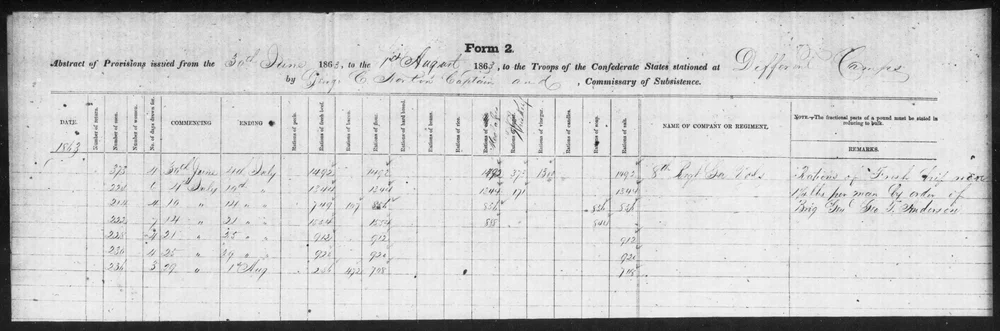 Form 2.
Abstract of Provisions issued from the 30th June 1863, to the 1st August 1863, to the Troops of the Confederate States stationed at Different Camps
by Captain and, Commissary of Subsistence.
DATE. Number of return. Number of men. Number of women. No. of days drawn for. COMMENCING ENDING Rations of pork. Rations of fresh beef. Rations of bacon. Rations of flour. Rations of hard bread. Rations of beans. Rations of rice. Rations of Rations of Whiskey Rations of vinegar. Rations of candles. Rations of soap. Rations of salt. NAME OF COMPANY OR REGIMENT. NOTE.—The fractional parts of a pound must be stated in reducing to bulk.
REMARKS.
1863
373 4 30th June 4th July 1492 1492 1492 373 1492 8th Regt Ga Vols Rations of Fresh Beef
224 6 4th July 10th " 1344 1344 1344 1344 per man by order of
214 4 10 " 14 " 749 107 856 856 856 856 Brig Gen Geo T. Anderson
222 7 14 " 21 " 1554 1554
228 4 21 " 25 " 912 912 912
230 4 25 " 29 " 920 920 920
236 3 29 " 1st Aug 236 472 708 708